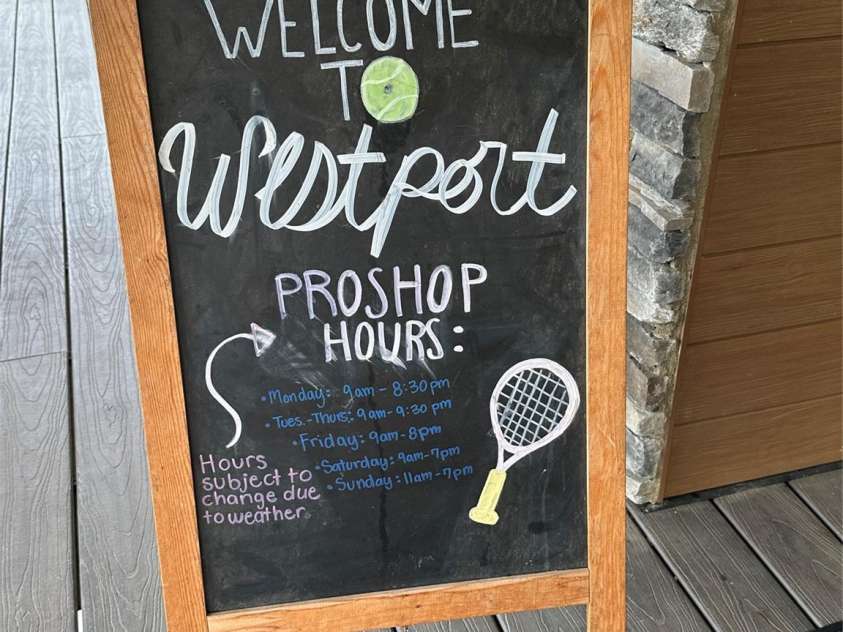 WELCOME
TO
Westport
PROSHOP
HOURS:
• Monday: 9am - 8:30pm
• Tues.-Thurs: 9am-9:30 pm
• Friday: 9am-8pm
• Saturday: 9am-7pm
• Sunday: 11am-7pm
Hours
subject to
change due
to weather.